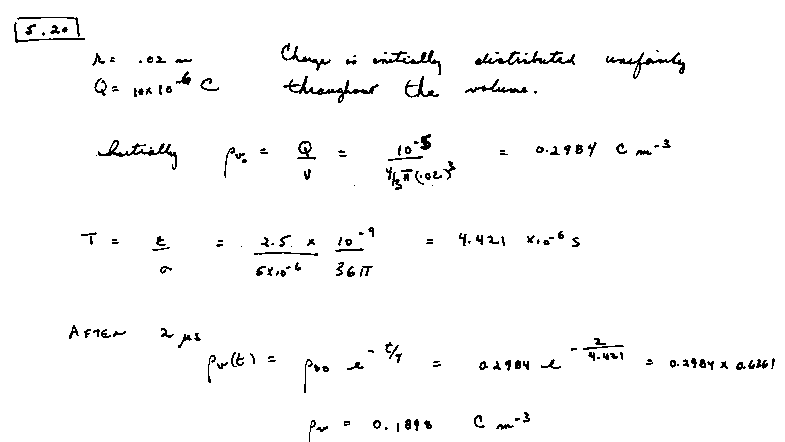 5.20
r = .02 m Charge is initially distributed uniformly
Q = 10x10^-6 C throughout the volume.
Initially ρv₀ = Q/v = 10^-5 / (4/3 π (.02)^3) = 0.2984 C m^-3
T = ε/σ = 2.5/(5x10^-6) x 10^-9/(36π) = 4.421 x10^-6 s
AFTER 2 μs
ρv(t) = ρv0 e^-t/T = 0.2984 e^-2/4.421 = 0.2984 x 0.6361
ρv = 0.1898 C m^-3